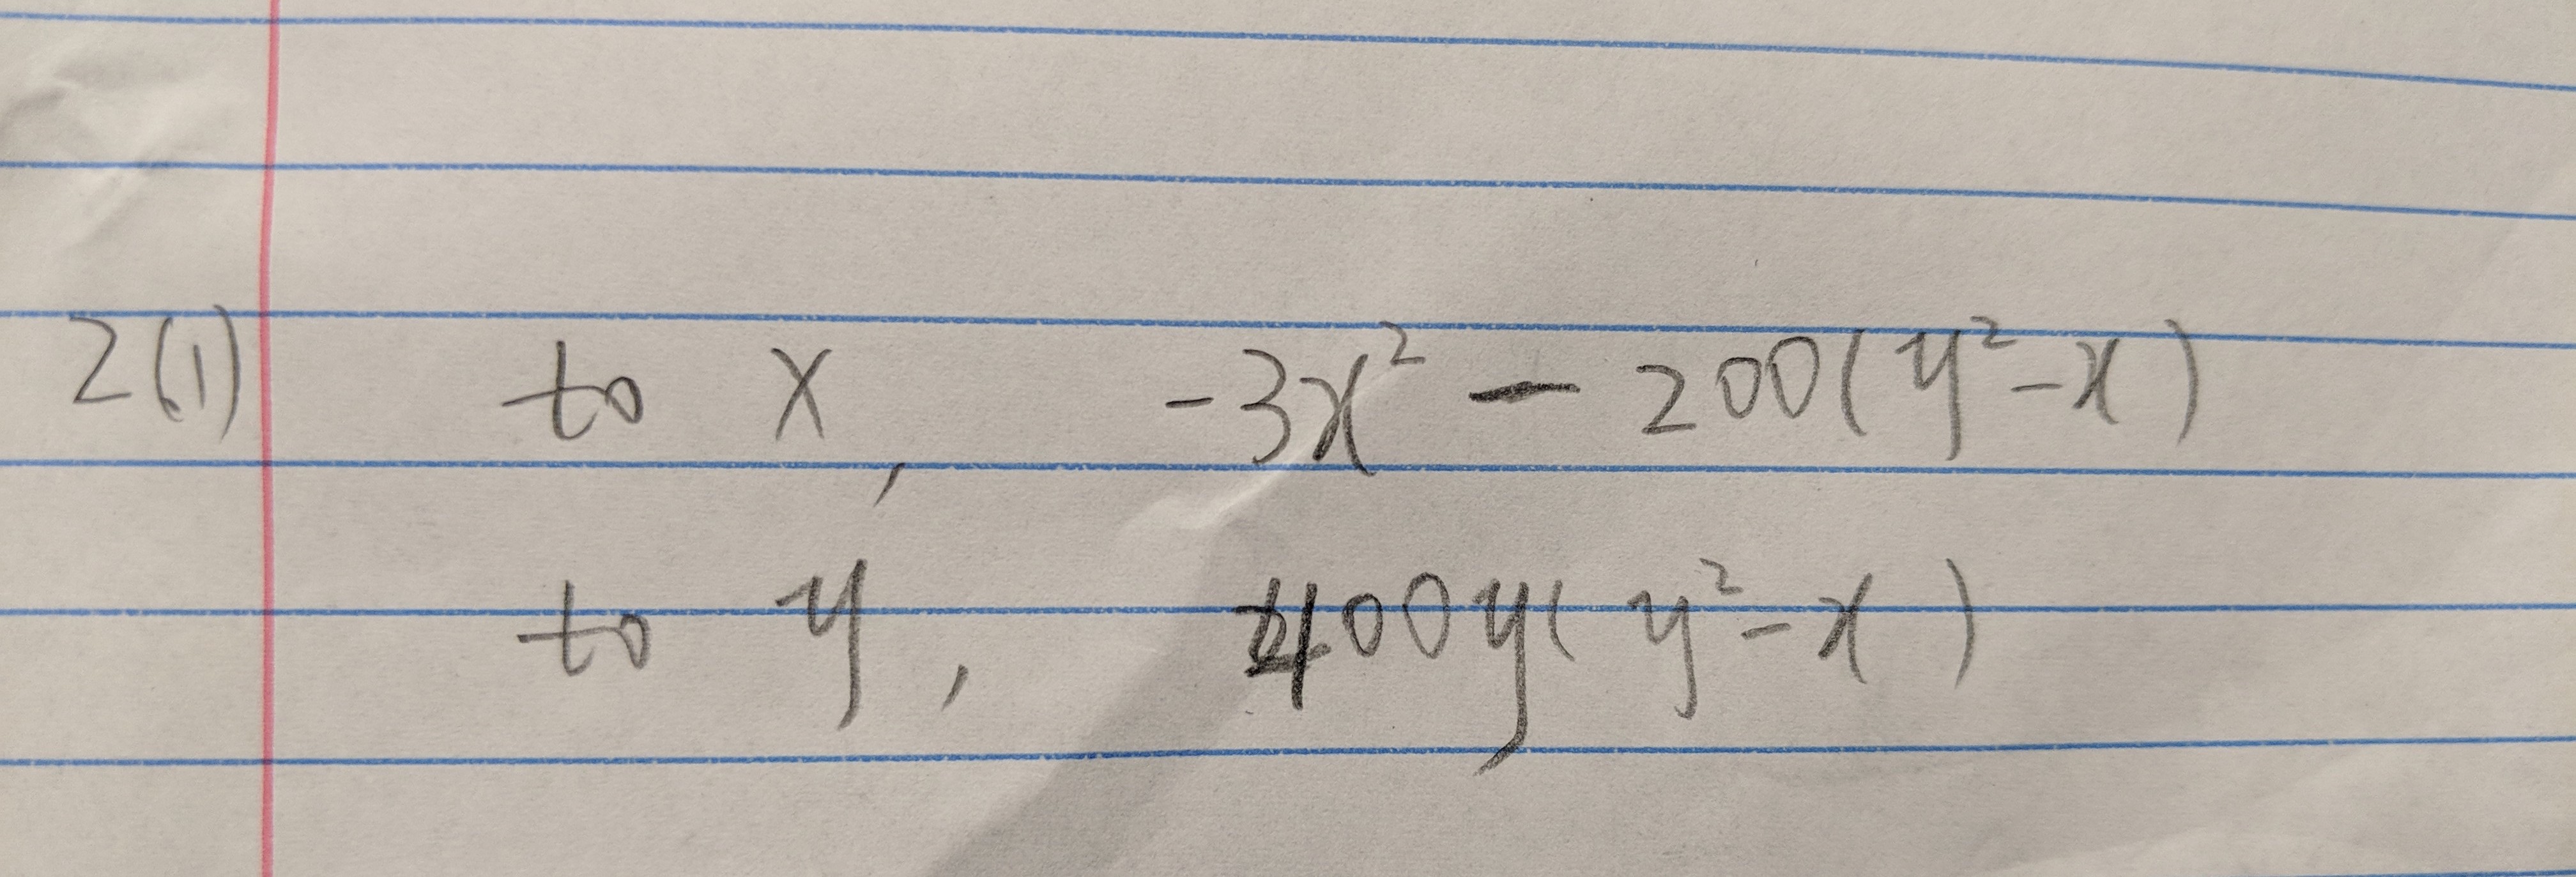 2(1) to x, -3x² - 200(y²-x)
to y, 400y(y²-x)